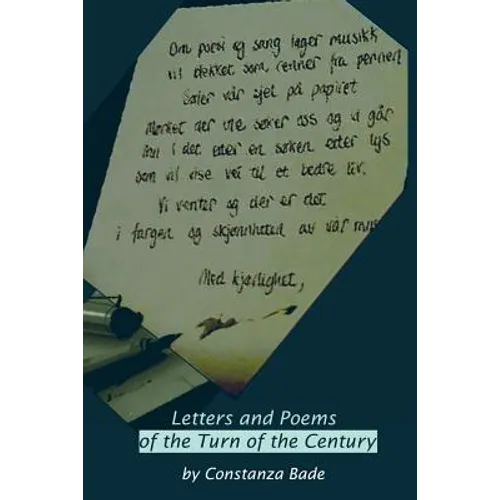 Om poesi og sang lager musikk
vil blekket som renner fra pennen
Sier vår sjel på papiret
Mørket der ute søker oss og vi går
inn i det etter en søken etter lys
som vil vise vei til et bedre liv.
Vi venter og der er det
i fargen og skjønnheten av vår
Med kjærlighet,
Letters and Poems
of the Turn of the Century
by Constanza Bade